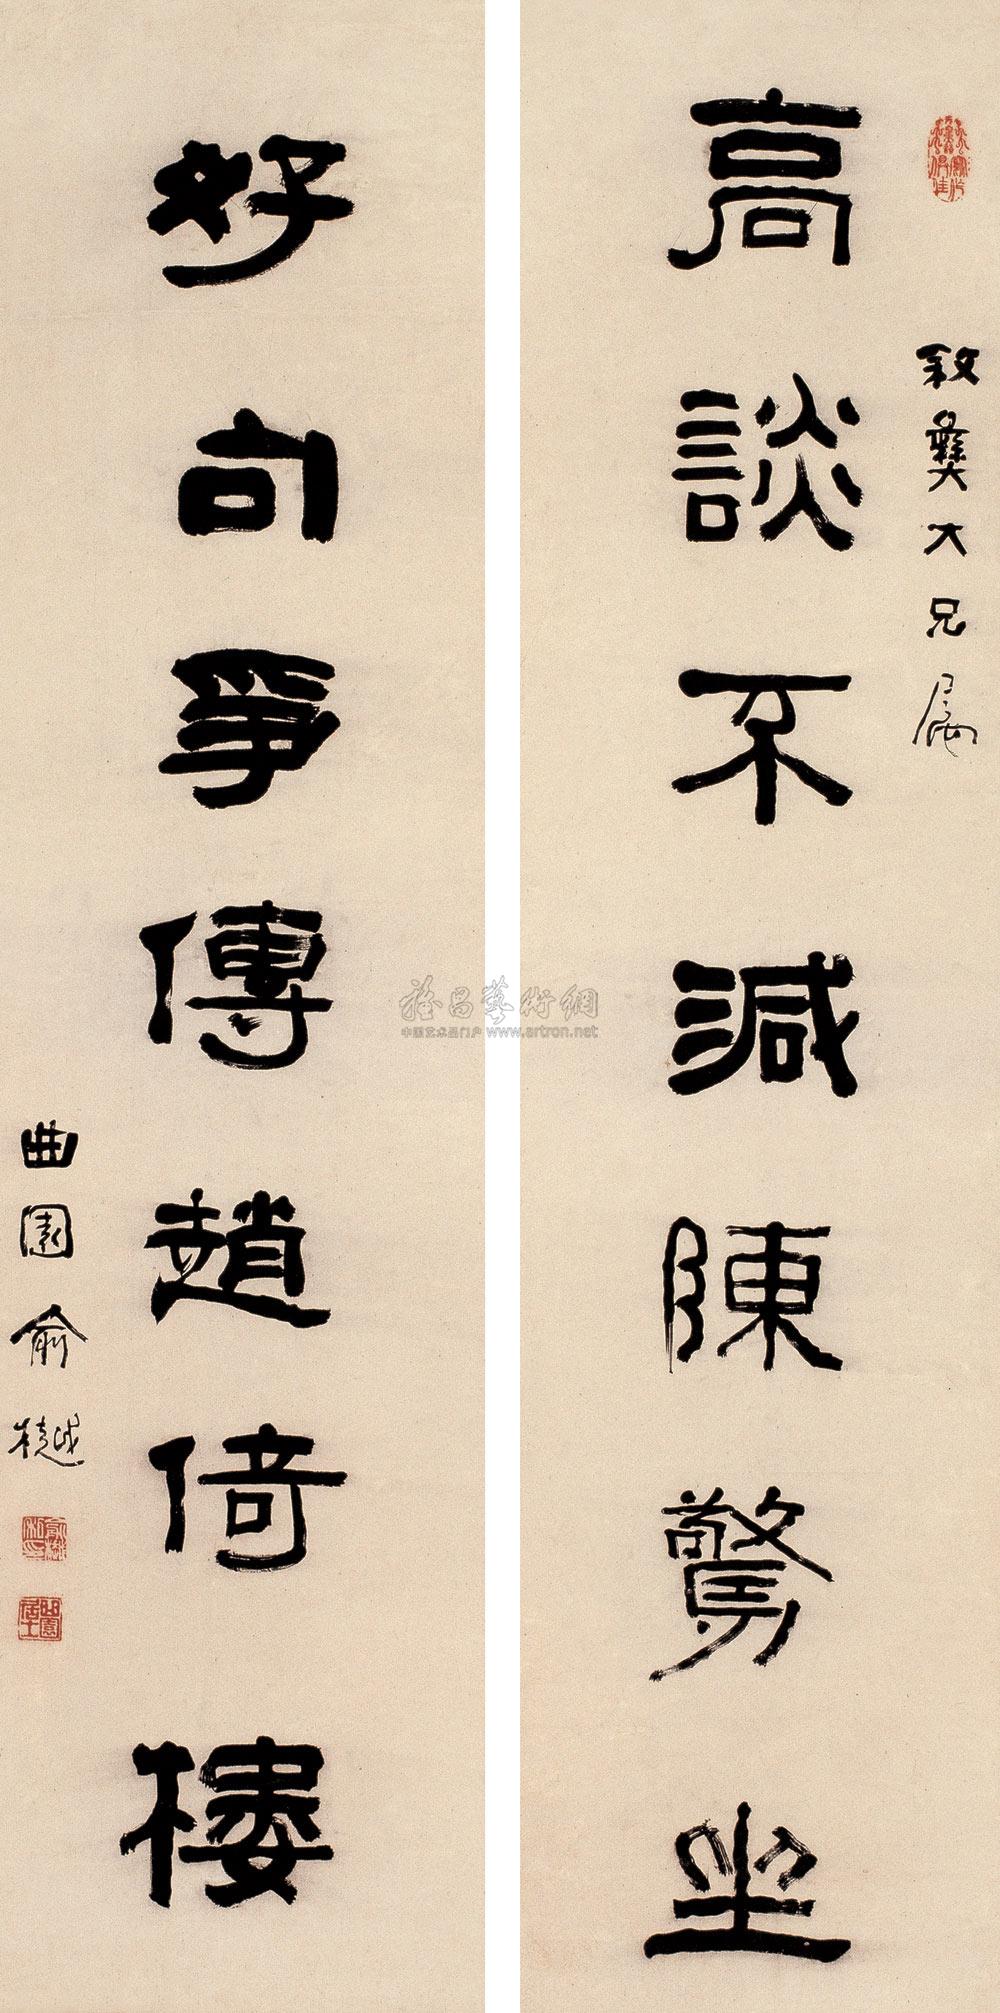 敘彝大兄屬
高談不減陳驚坐
好句爭傳趙倚樓
曲園俞樾
雅昌藝術網
中国艺术品门户 www.artron.net